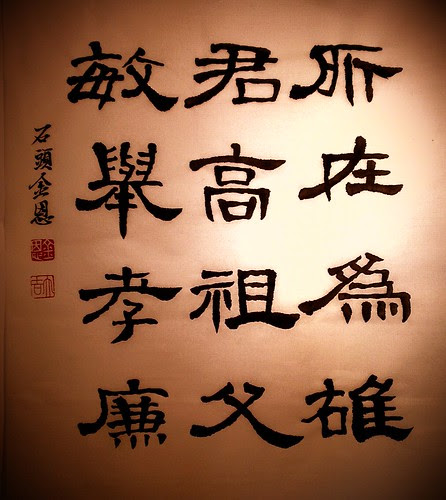 所在為雄
君高祖父
敏舉孝廉
石頭金恩